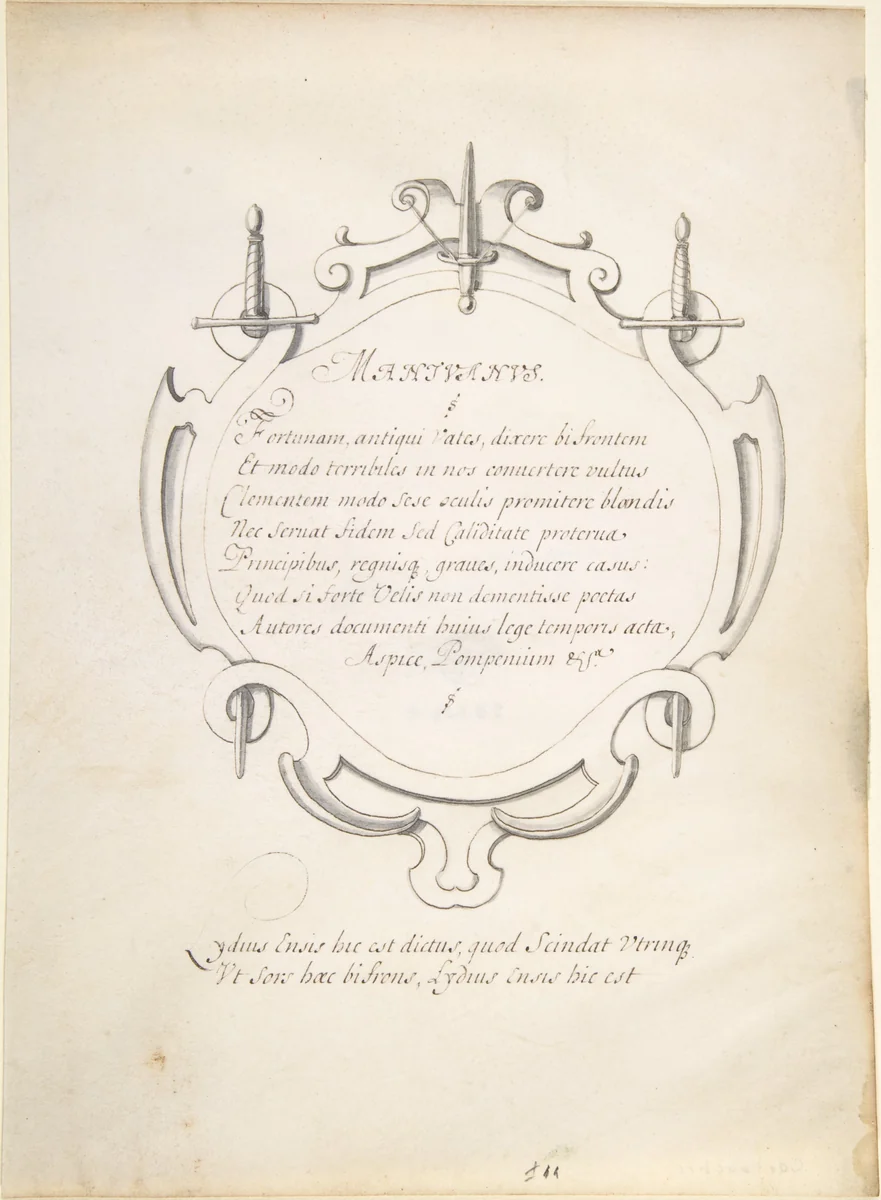 MANTVANVS.
Fortunam, antiqui Vates, dixere bifrontem
Et modo terribiles in nos conuertere vultus
Clementem modo sese oculis promitere blandis
Nec seruat fidem sed Caliditate proterua
Principibus, regnisq, graues, inducere casus:
Quod si forte Velis non dementisse poetas
Autores documenti huius lege temporis acta,
Aspice, Pompenium &c.
Lydius Ensis hic est dictus, quod Scindat Vtrinq.
Vt Sors hæc bifrons, Lydius Ensis hic est